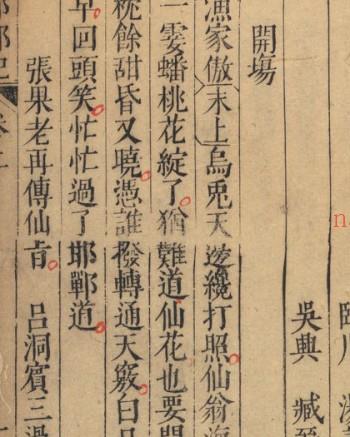 吳興 臧
開塲
漁家傲末上烏兎天邊纔打照仙翁海
一霎蟠桃花綻了猶難道仙花也要
枕餘甜昏又曉憑誰撥轉通天竅白
早回頭笑忙忙過了邯鄲道
張果老再傳仙㫖 呂洞賓三過
鄲記 卷